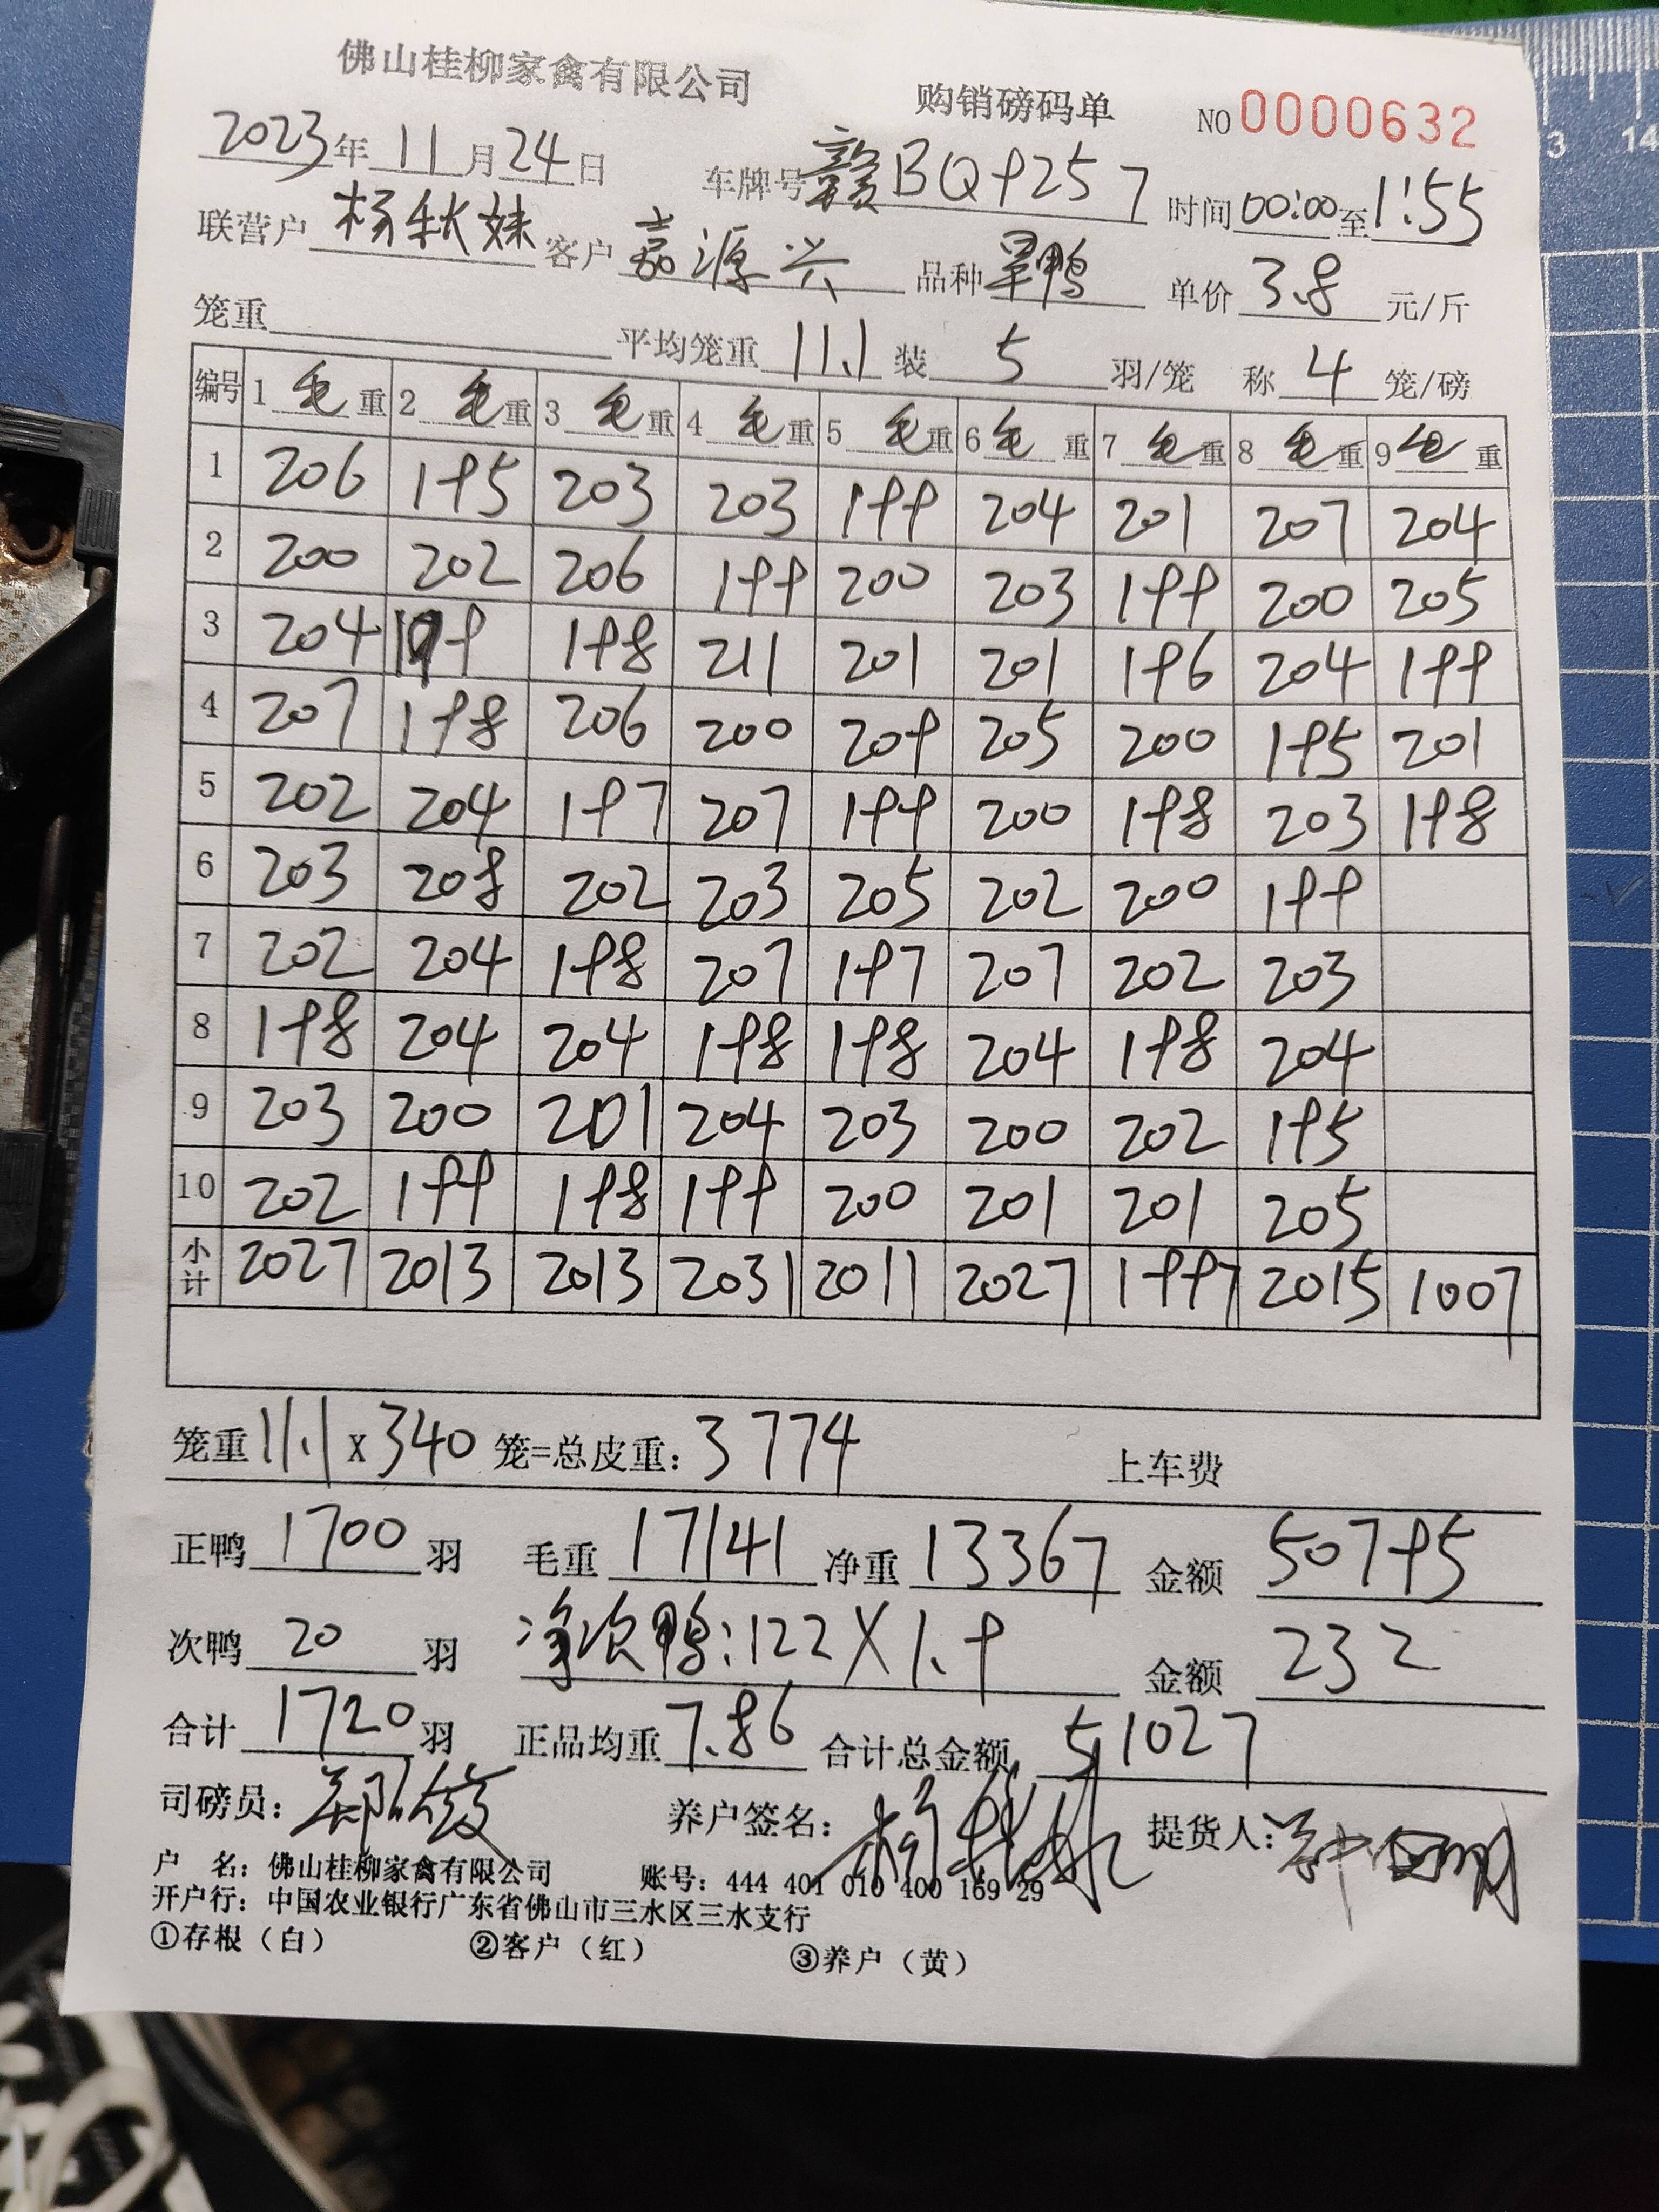 佛山桂柳家禽有限公司 购销磅码单 NO 0000632
2023年11月24日 车牌号赣BQ9257 时间00:00至1:55
联营户 杨秋妹 客户 嘉源兴 品种 旱鸭 单价 3.8 元/斤
笼重 平均笼重 11.1 装 5 羽/笼 称 4 笼/磅
编号 1 毛重 2 毛重 3 毛重 4 毛重 5 毛重 6 毛重 7 毛重 8 毛重 9 毛重
1 206 195 203 203 199 204 201 207 204
2 200 202 206 199 200 203 199 200 205
3 204 199 198 211 201 201 196 204 199
4 207 198 206 200 209 205 200 195 201
5 202 204 197 207 199 200 198 203 198
6 203 208 202 203 205 202 200 199
7 202 204 198 207 197 207 202 203
8 198 204 204 198 198 204 198 204
9 203 200 201 204 203 200 202 195
10 202 199 198 199 200 201 201 205
小计 2027 2013 2013 2031 2011 2027 1997 2015 1007
笼重 11.1 X 340 笼=总皮重：3774 上车费
正鸭 1700 羽 毛重 17141 净重 13367 金额 50795
次鸭 20 羽 净次鸭:122X1.9 金额 232
合计 1720 羽 正品均重 7.86 合计总金额 51027
司磅员： 养户签名： 提货人：
户 名：佛山桂柳家禽有限公司 账号：444 401 010 400 169 29
开户行：中国农业银行广东省佛山市三水区三水支行
①存根（白） ②客户（红） ③养户（黄）